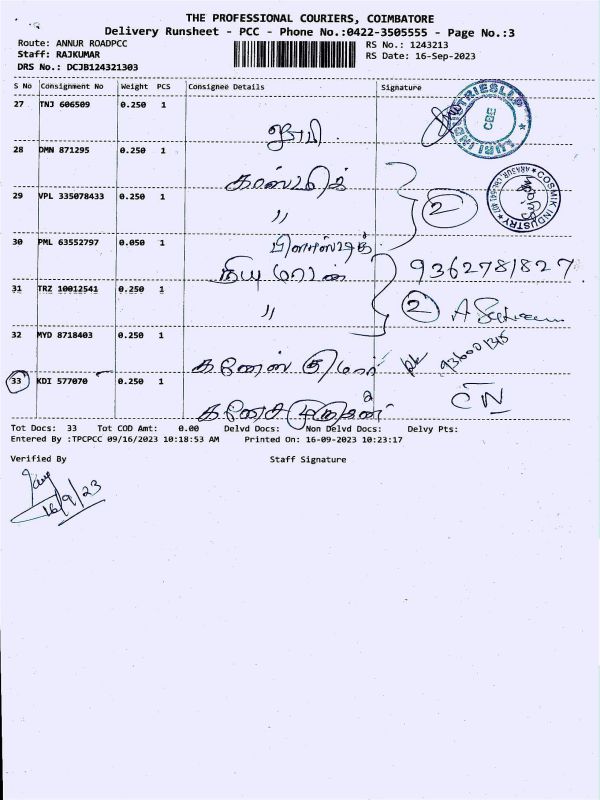 THE PROFESSIONAL COURIERS, COIMBATORE
Delivery Runsheet - PCC - Phone No.:0422-3505555 - Page No.:3
Route: ANNUR ROADPCC
RS No.: 1243213
Staff: RAJKUMAR
RS Date: 16-Sep-2023
DRS No.: DCJB124321303
S No Consignment No Weight PCS Consignee Details Signature
27 TNJ 606509 0.250 1
லூரி
LURI INDUSTRIES LLP
CBE
28 DMN 871295 0.250 1
காஸ்மிக்
COSMIK INDUSTRY
29 VPL 335078433 0.250 1
〃
2
30 PML 63552797 0.050 1
நியு மாடர்ன்
9362781827
31 TRZ 10012541 0.250 1
〃
2
32 MYD 8718403 0.250 1
கணேஸ் குமார்
33 KDI 577070 0.250 1
CN
Tot Docs: 33 Tot COD Amt: 0.00 Delvd Docs: Non Delvd Docs: Delvy Pts:
Entered By :TPCPCC 09/16/2023 10:18:53 AM Printed On: 16-09-2023 10:23:17
Verified By Staff Signature
16/9/23